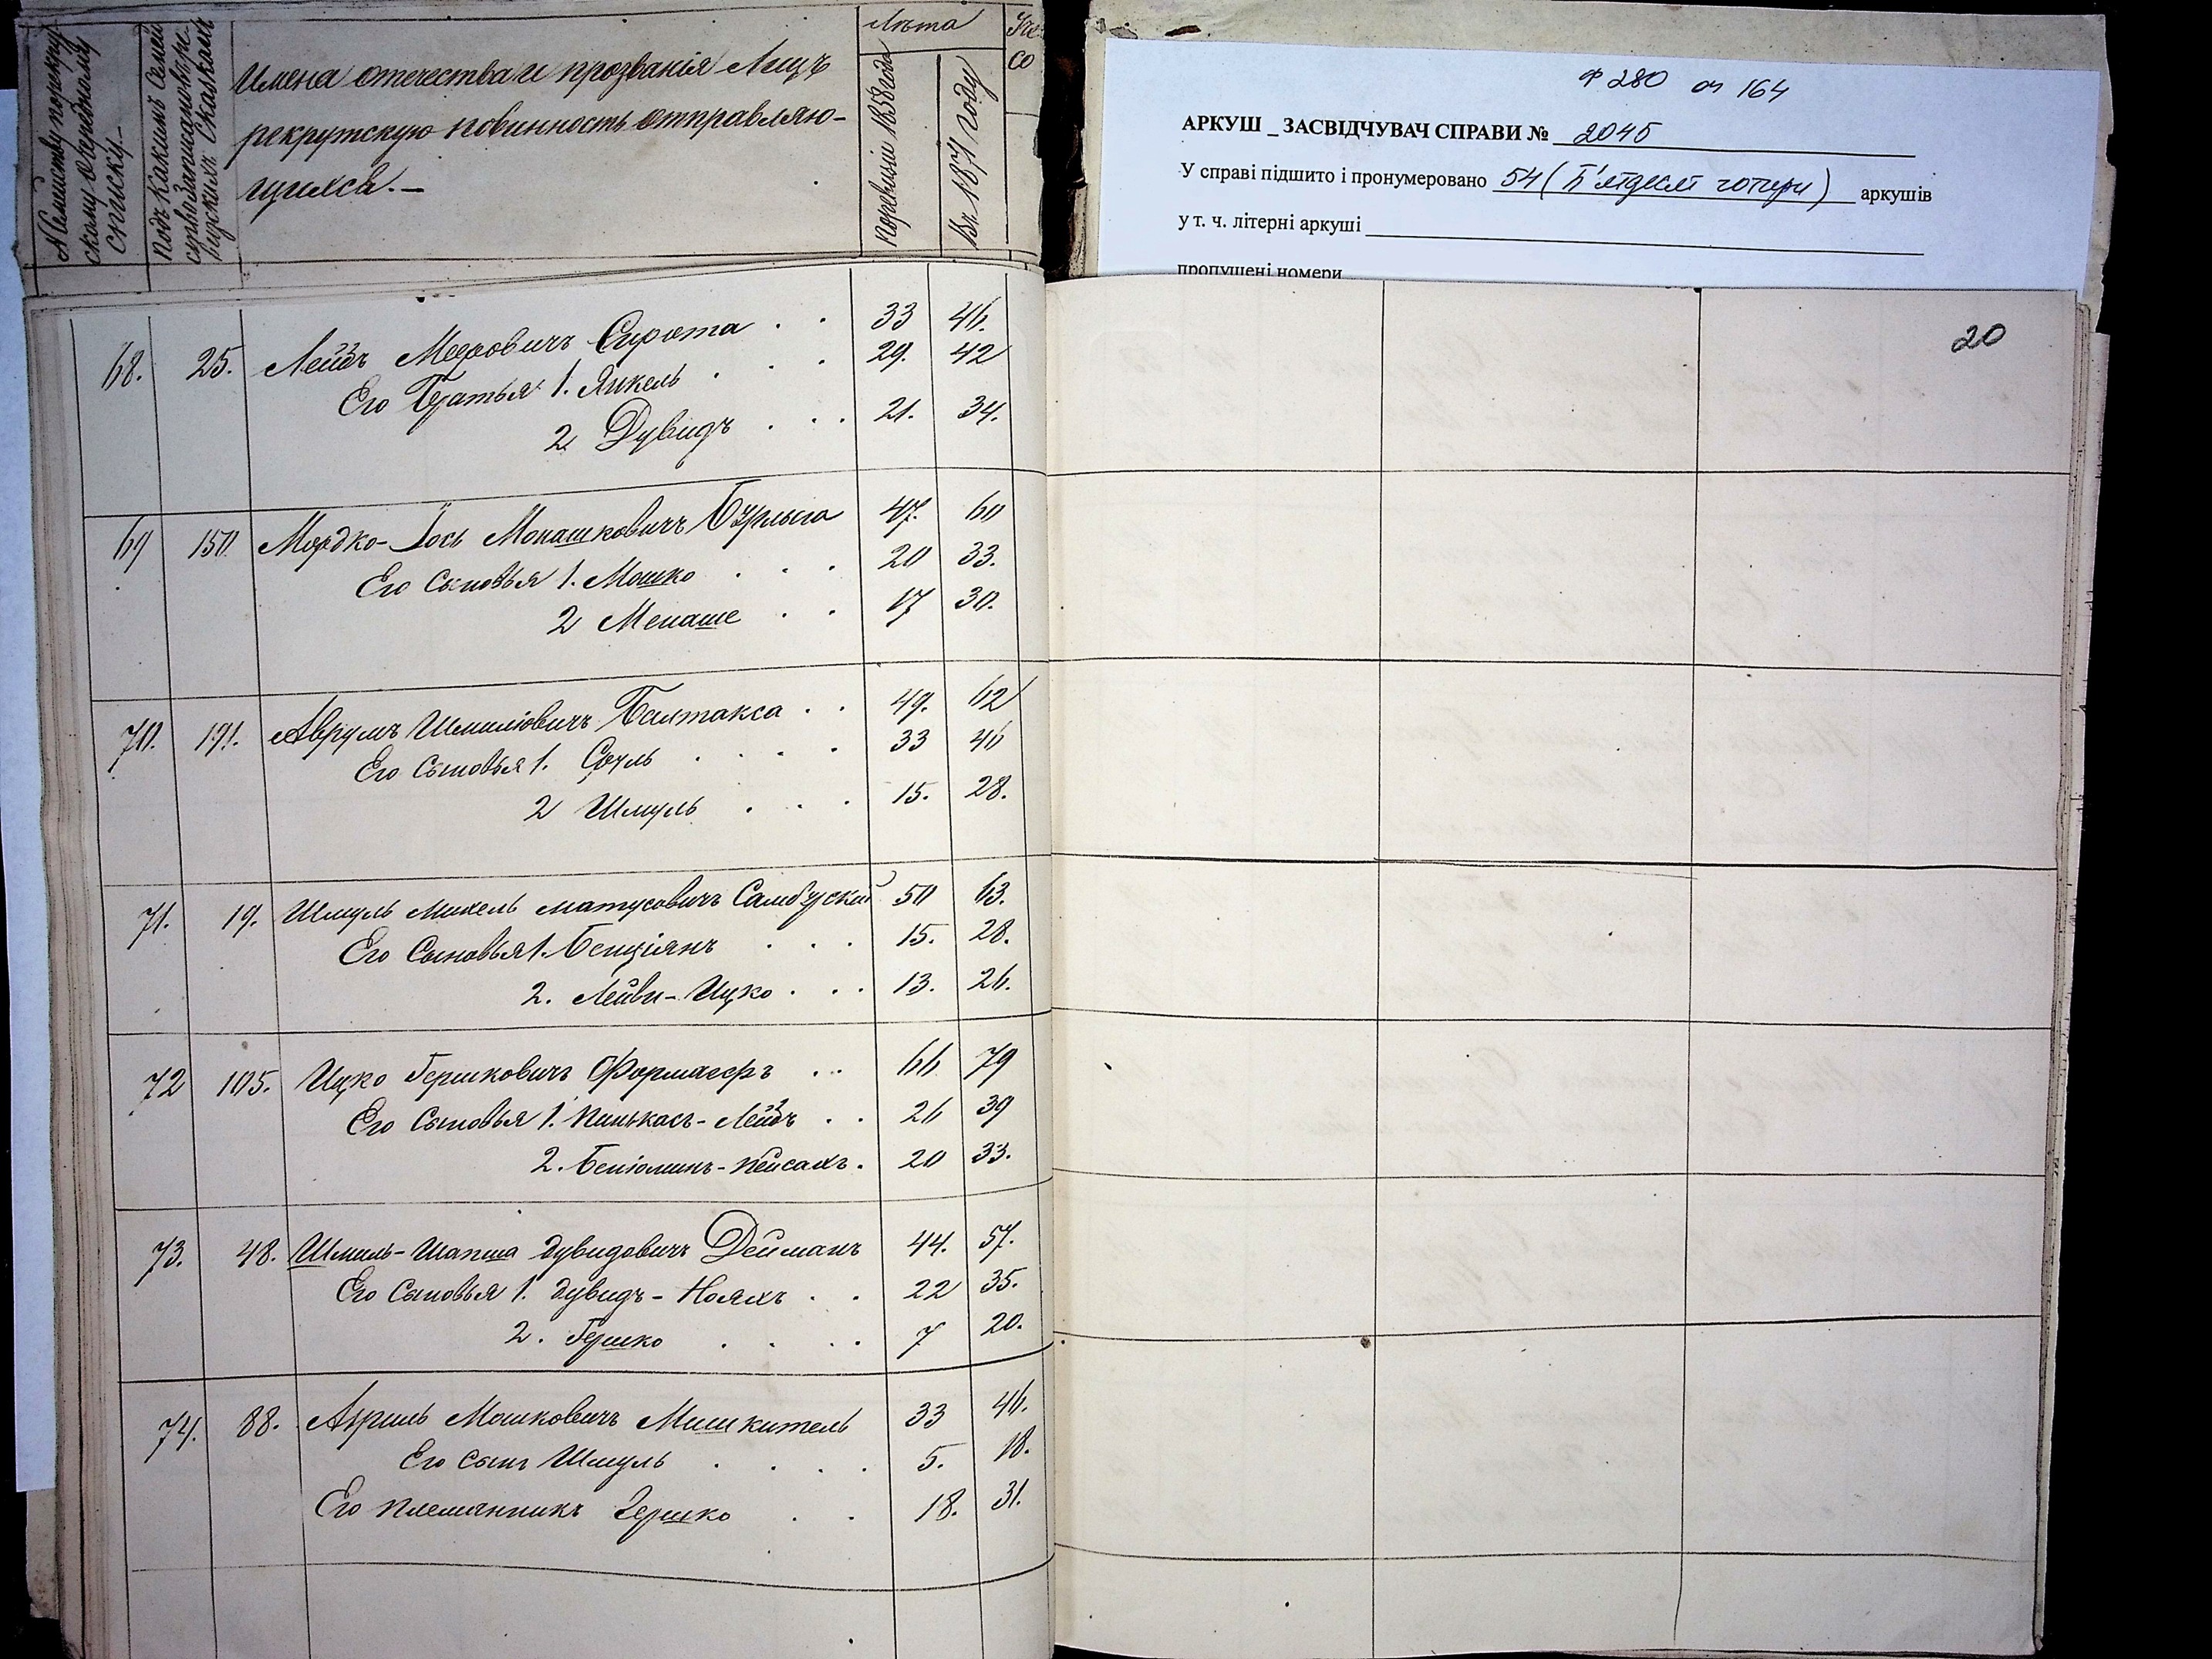 № семейству по рекрут-
скому очередному
списку.—
Подъ какимъ семей-
ствомъ записаны въ ре-
визскихъ сказкахъ
Имена отечества и прозванія лицъ
рекрутскую повинность отправляю-
щихся.—
Лѣта
По ревизіи 1858 года
Въ 1871 году
68. 25. Лейбъ Мееровичъ Сирота . . 33 46.
Его Братья 1. Янкель . . . 29. 42
2 Дувидъ . . . 21. 34.
69 150 Мордко-Іось Монашковичъ Бурлыга 47. 60
Его Сыновья 1. Мошко . . . 20 33.
2 Менаше . . 17 30.
70. 191. Аврумъ Шмиліовичъ Балтакса . . 49. 62
Его Сыновья 1. Сруль . . . . 33 46
2 Шмуль . . . 15. 28.
71. 19. Шмуль Михель Матусовичъ Самбурскій 50 63.
Его Сыновья 1. Бенціянъ . . . 15. 28.
2. Лейви-Ицко . . . 13. 26.
72 105. Ицко Гершковичъ Формагеръ . . 66 79
Его Сыновья 1. Пинькасъ-Лейбъ . . 26 39
2. Беніоминъ-Пейсахъ. 20 33.
73. 48. Шмиль-Шапша Дувидовичъ Дейманъ 44. 57.
Его Сыновья 1. Дувидъ-Нояхъ . . 22 35.
2. Гершко . . . . 7 20.
74. 88. Азриль Мошковичъ Мишкитель 33 46.
Его Сынъ Шмуль . . . . 5. 18.
Его племянникъ Гершко . . 18. 31.
Ф 280 оп 164
АРКУШ _ ЗАСВІДЧУВАЧ СПРАВИ № 2045
У справі підшито і пронумеровано 54 (П'ятдесят чотири) аркушів
у т. ч. літерні аркуші
пропущені номери
20